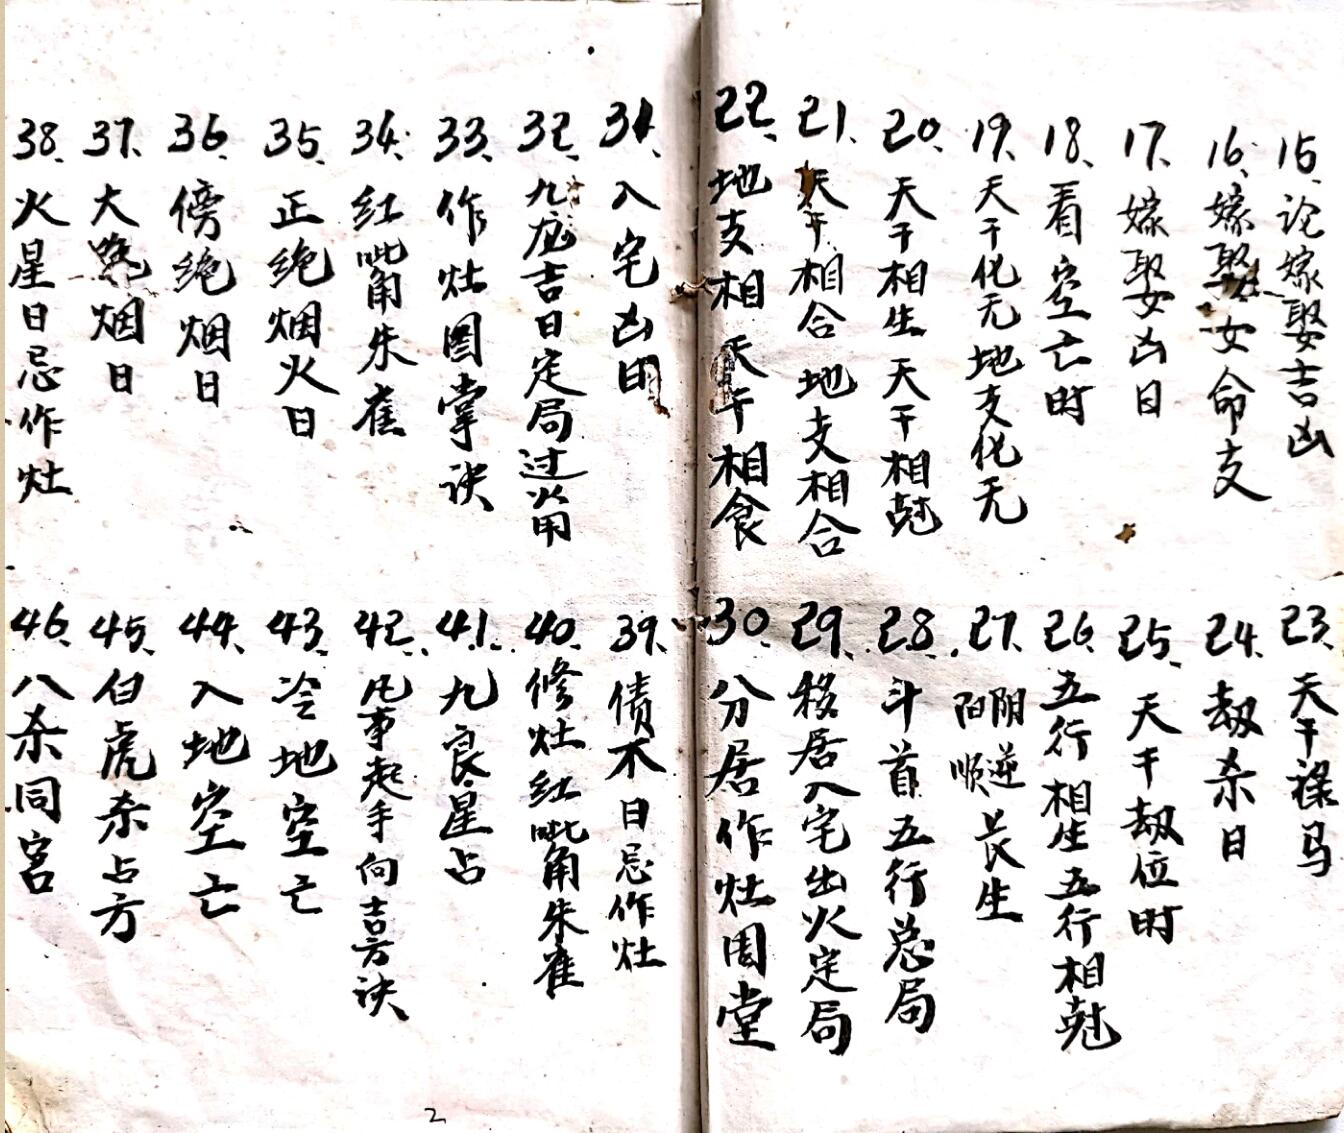 15、论嫁娶吉凶
16、嫁娶女命支
17、嫁娶凶日
18、看空亡时
19、天干化无地支化无
20、天干相生天干相尅
21、天干相合地支相合
22、地支相天干相食
23、天干禄马
24、劫杀日
25、天干劫位时
26、五行相生五行相尅
27、阳阴顺逆长生
28、斗首五行总局
29、移居入宅出火定局
30、分居作灶周堂
31、入宅凶日
32、九龙吉日定局过
33、作灶图掌诀
34、红角朱雀
35、正绝烟火日
36、傍绝烟日
37、大烟日
38、火星日忌作灶
39、债不日忌作灶
40、修灶红角朱雀
41、九良星占
42、凡事起手向喜方诀
43、冷地空亡
44、入地空亡
45、白虎杀占方
46、八杀同宫
2